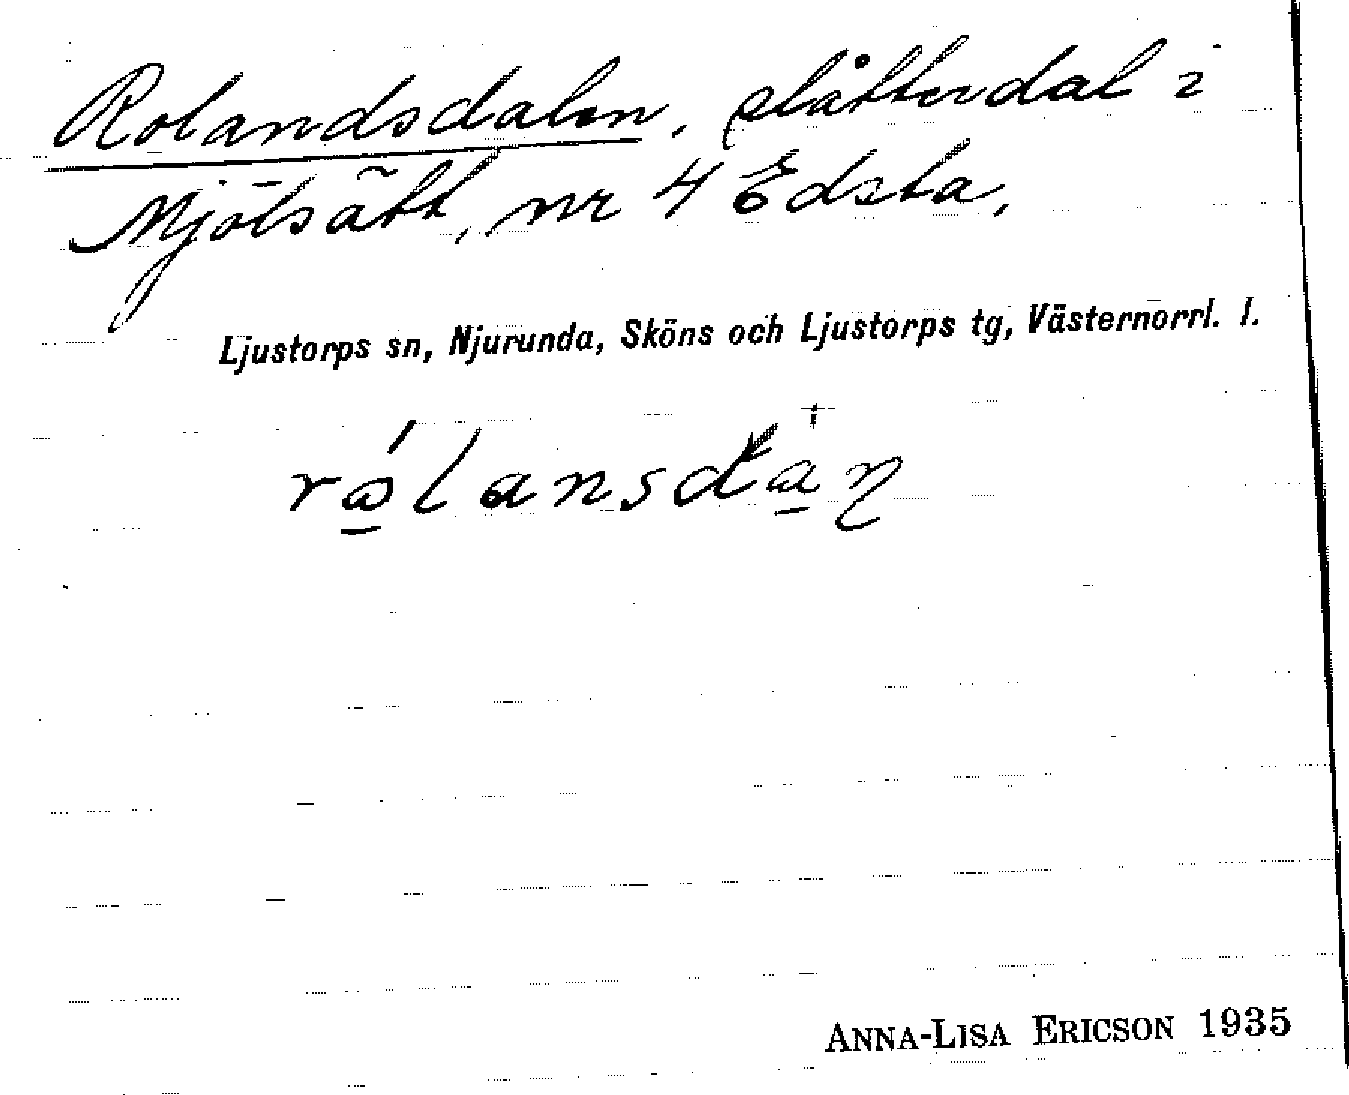 Rolandsdalen, slåtterdal i
Mjölsätt, nr 4 Edsta,
Ljustorps sn, Njurunda, Sköns och Ljustorps tg, Västernorrl. l.
ANNA-LISA ERICSON 1935